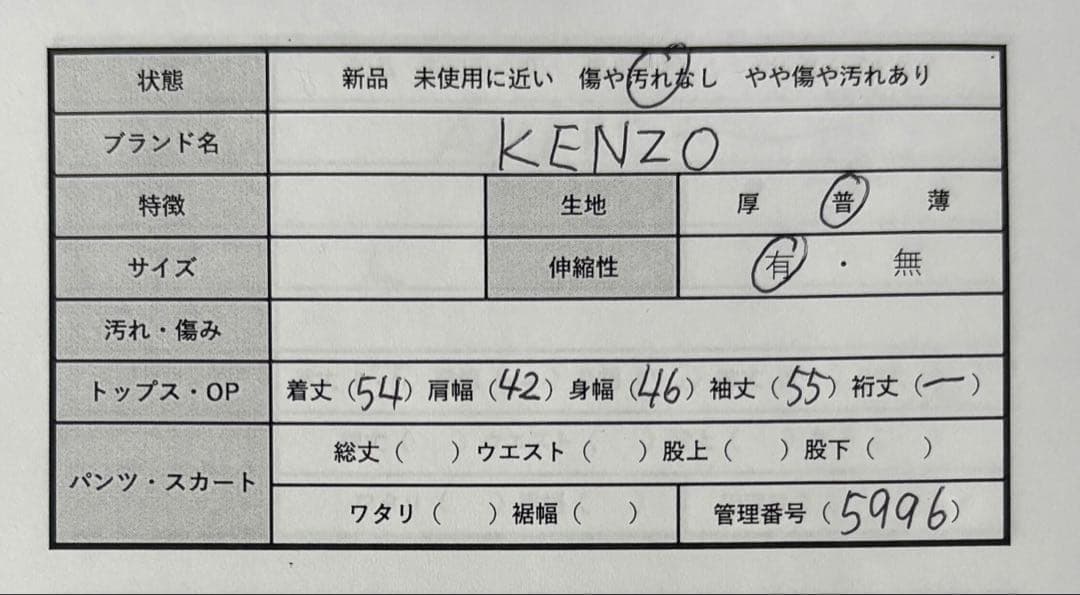 状態 新品 未使用に近い 傷や汚れなし やや傷や汚れあり
ブランド名 KENZO
特徴 生地 厚 普 薄
サイズ 伸縮性 有 ・ 無
汚れ・傷み
トップス・OP 着丈（54）肩幅（42）身幅（46）袖丈（55）裄丈（ー）
パンツ・スカート 総丈（ ）ウエスト（ ）股上（ ）股下（ ）
ワタリ（ ）裾幅（ ） 管理番号（5996）